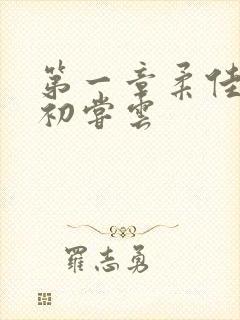 第一章柔佳
初嘗雲
羅志勇